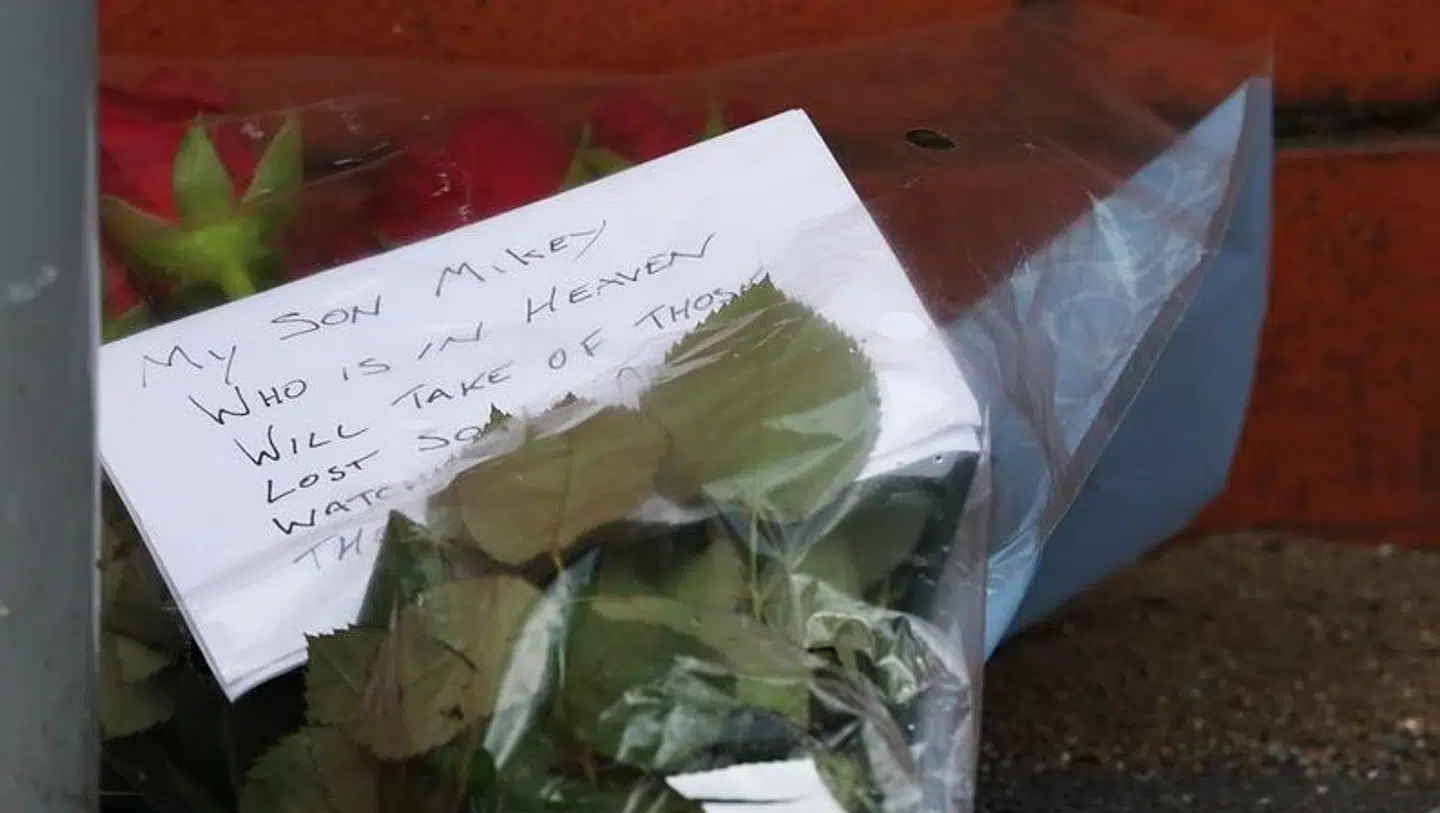 My SON MIKEY
WHO IS IN HEAVEN
WILL TAKE OF THOSE
LOST